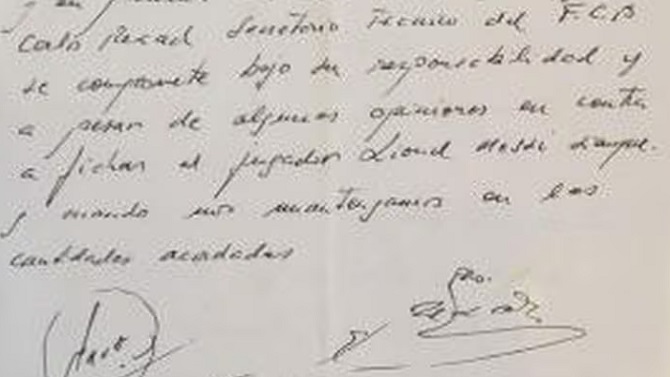 y en
Carlos Rexach Secretario Técnico del F.C.B
se compromete bajo su responsabilidad y
a pesar de algunas opiniones en contra
a fichar al jugador Lionel Messi siempre
y cuando nos mantengamos en las
cantidades acordadas